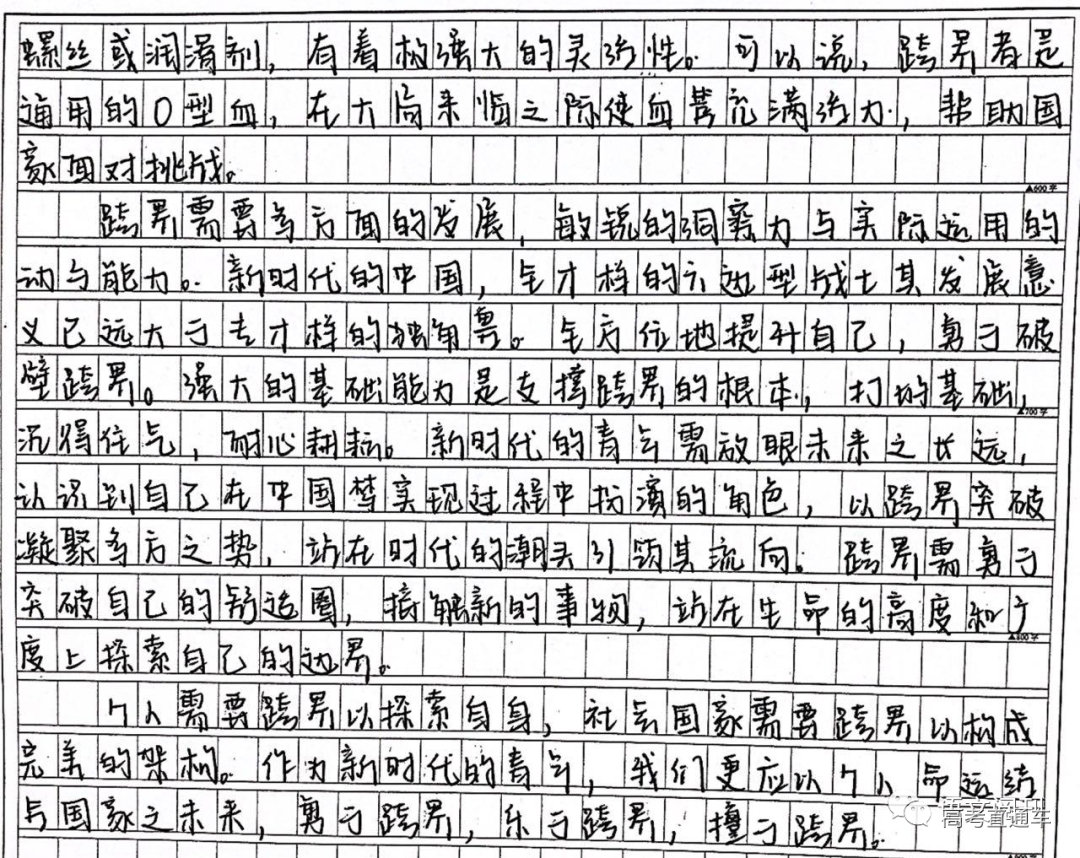 螺丝或润滑剂，有着极强大的灵活性。可以说，跨界者是
通用的O型血，在大局来临之际使血管充满张力，帮助国
家面对挑战。
▲600字
跨界需要多方面的发展，敏锐的洞察力与实际运用的
动手能力。新时代的中国，全才样的六边型战士其发展意
义已远大于专才样的独角兽。全方位地提升自己，勇于破
壁跨界。强大的基础能力是支撑跨界的根本，打好基础，
▲700字
沉得住气，耐心耕耘。新时代的青年需放眼未来之长远，
认识到自己在中国梦实现过程中扮演的角色，以跨界突破
凝聚多方之势，站在时代的潮头引领其流向。跨界需勇于
突破自己的舒适圈，接触新的事物，站在生命的高度和广
▲800字
度上探索自己的边界。
个人需要跨界以探索自身，社会国家需要跨界以构成
完美的架构。作为新时代的青年，我们更应以个人命运结
与国家之未来，勇于跨界，乐于跨界，擅于跨界。
高考直通车